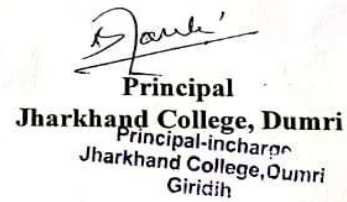 Principal
Jharkhand College, Dumri
Principal-incharge
Jharkhand College, Dumri
Giridih